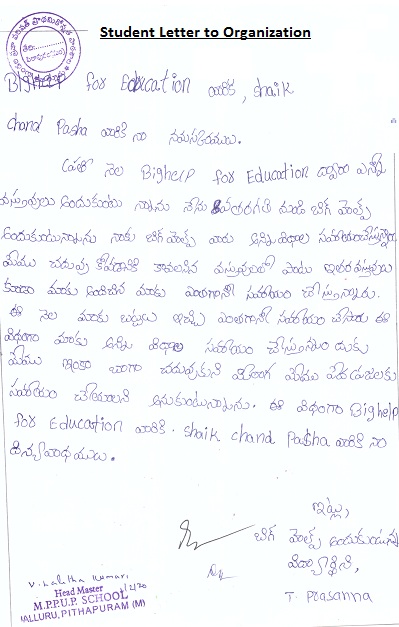 Student Letter to Organization
Bighelp for Education వారికి, shaik
chand Pasha వారికి నా నమస్కారములు.
ప్రతి నెల Bighelp for Education ద్వారా ఎన్నో
వస్తువులు అందుకుంటు న్నాను నేను 8వతరగతి నుండి బిగ్ హెల్ప్
అందుకుంటున్నాను నాకు బిగ్ హెల్ప్ వారు అన్ని విధాల సహాయంచేస్తున్నారు
మేము చదువు కోవడానికి కావలసిన వస్తువులతో పాటు ఇతర వస్తువులు
కూడా మాకు అందించి మాకు ఎంతగానో సహాయం చేస్తున్నారు.
ఈ నెల మాకు బట్టలు ఇచ్చి ఎంతగానో సహాయం చేసారు ఈ
విధంగా మాకు అన్ని విధాల సహాయం చేస్తున్నందు దుకు
మేము ఇంకా బాగా చదువుకుని మేము పేదప్రజలకు
సహాయం చేయాలని అనుకుంటున్నాను. ఈ విధంగా Bighelp
for Education వారికి. shaik chand Pasha వారికి నా
ధన్యవాదములు.
ఇట్లు,
బిగ్ హెల్ప్ అందుకుంటున్న
విద్యార్థిని,
T. Prasanna
V. Lalitha Kumari
Head Master
M.P.P.U.P. SCHOOL
MALLURU, PITHAPURAM (M)